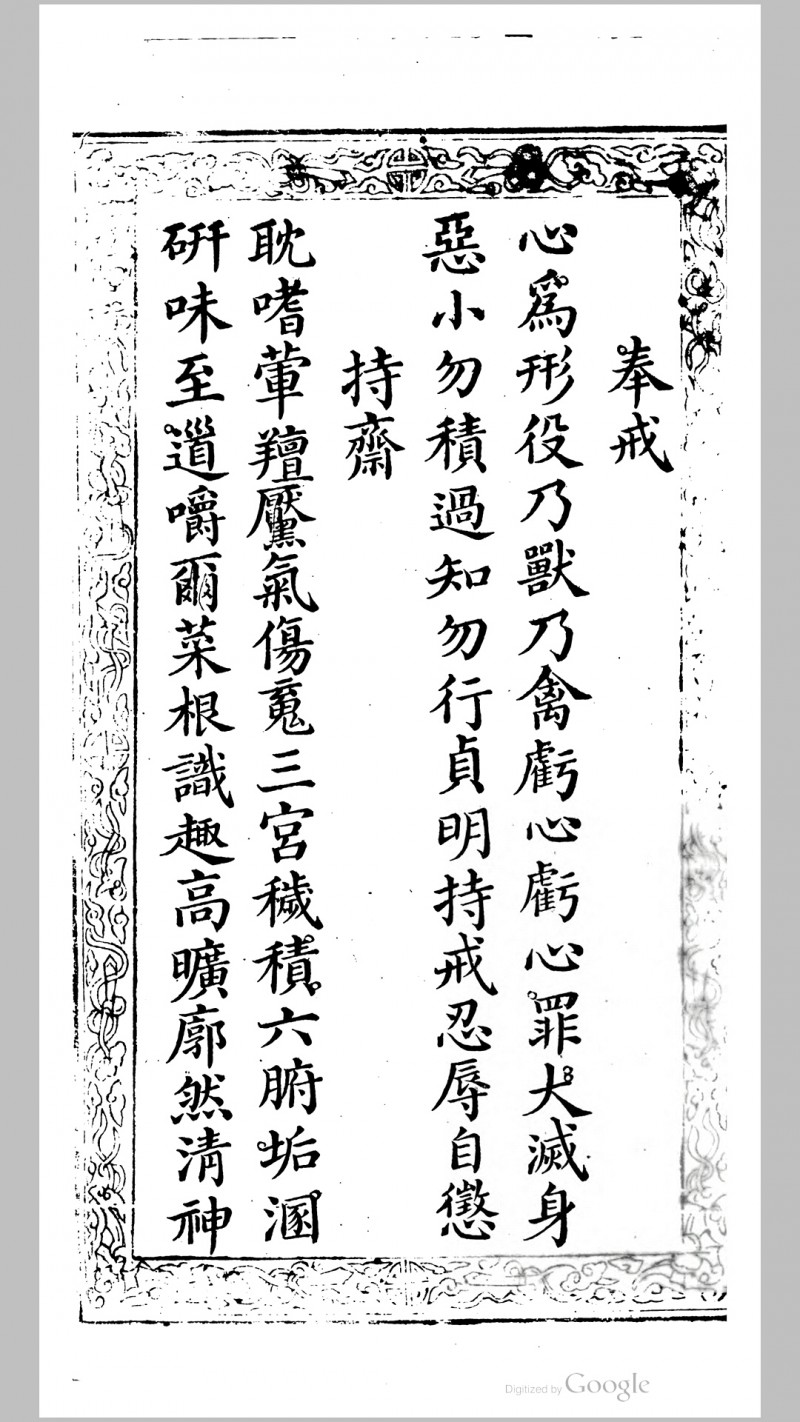 奉戒
心為形役乃獸乃禽虧心虧心罪大滅身
惡小勿積過知勿行貞明持戒忍辱自懲
持齋
耽嗜葷羶魘氣傷寬三宮穢積六腑垢溷
硏味至道嚼爾菜根識趣高曠廓然清神
Digitized by Google